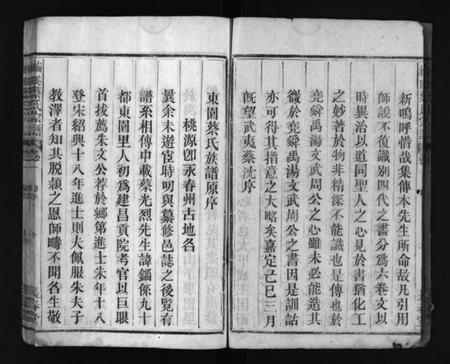 新嗚呼惜哉集傳本先生所命故凡引用
師說不復識別四代之書分爲六卷文以
時異治以道同聖人之心見於書猶化工
之妙著於物非精深不能識也是傳也於
堯舜禹湯文武周公之心雖未必能造其
微於堯舜禹湯文武周公之書因是訓詁
亦可得其指意之大略矣嘉定己巳三月
既望武夷蔡沈序
東園蔡氏族譜原序
桃源卽永春州古地名
曩余未遊宦時叨與纂修邑誌之後覽有
譜系相傳中載蔡光烈先生諱鎡係九十
都東園里人初爲建昌貢院考官以巨眼
首拔薦朱文公荐於鄉第進士朱年十八
登宋紹興十八年進士則夫佩服朱夫子
教澤者知其脫潁之恩師疇不聞名生敬